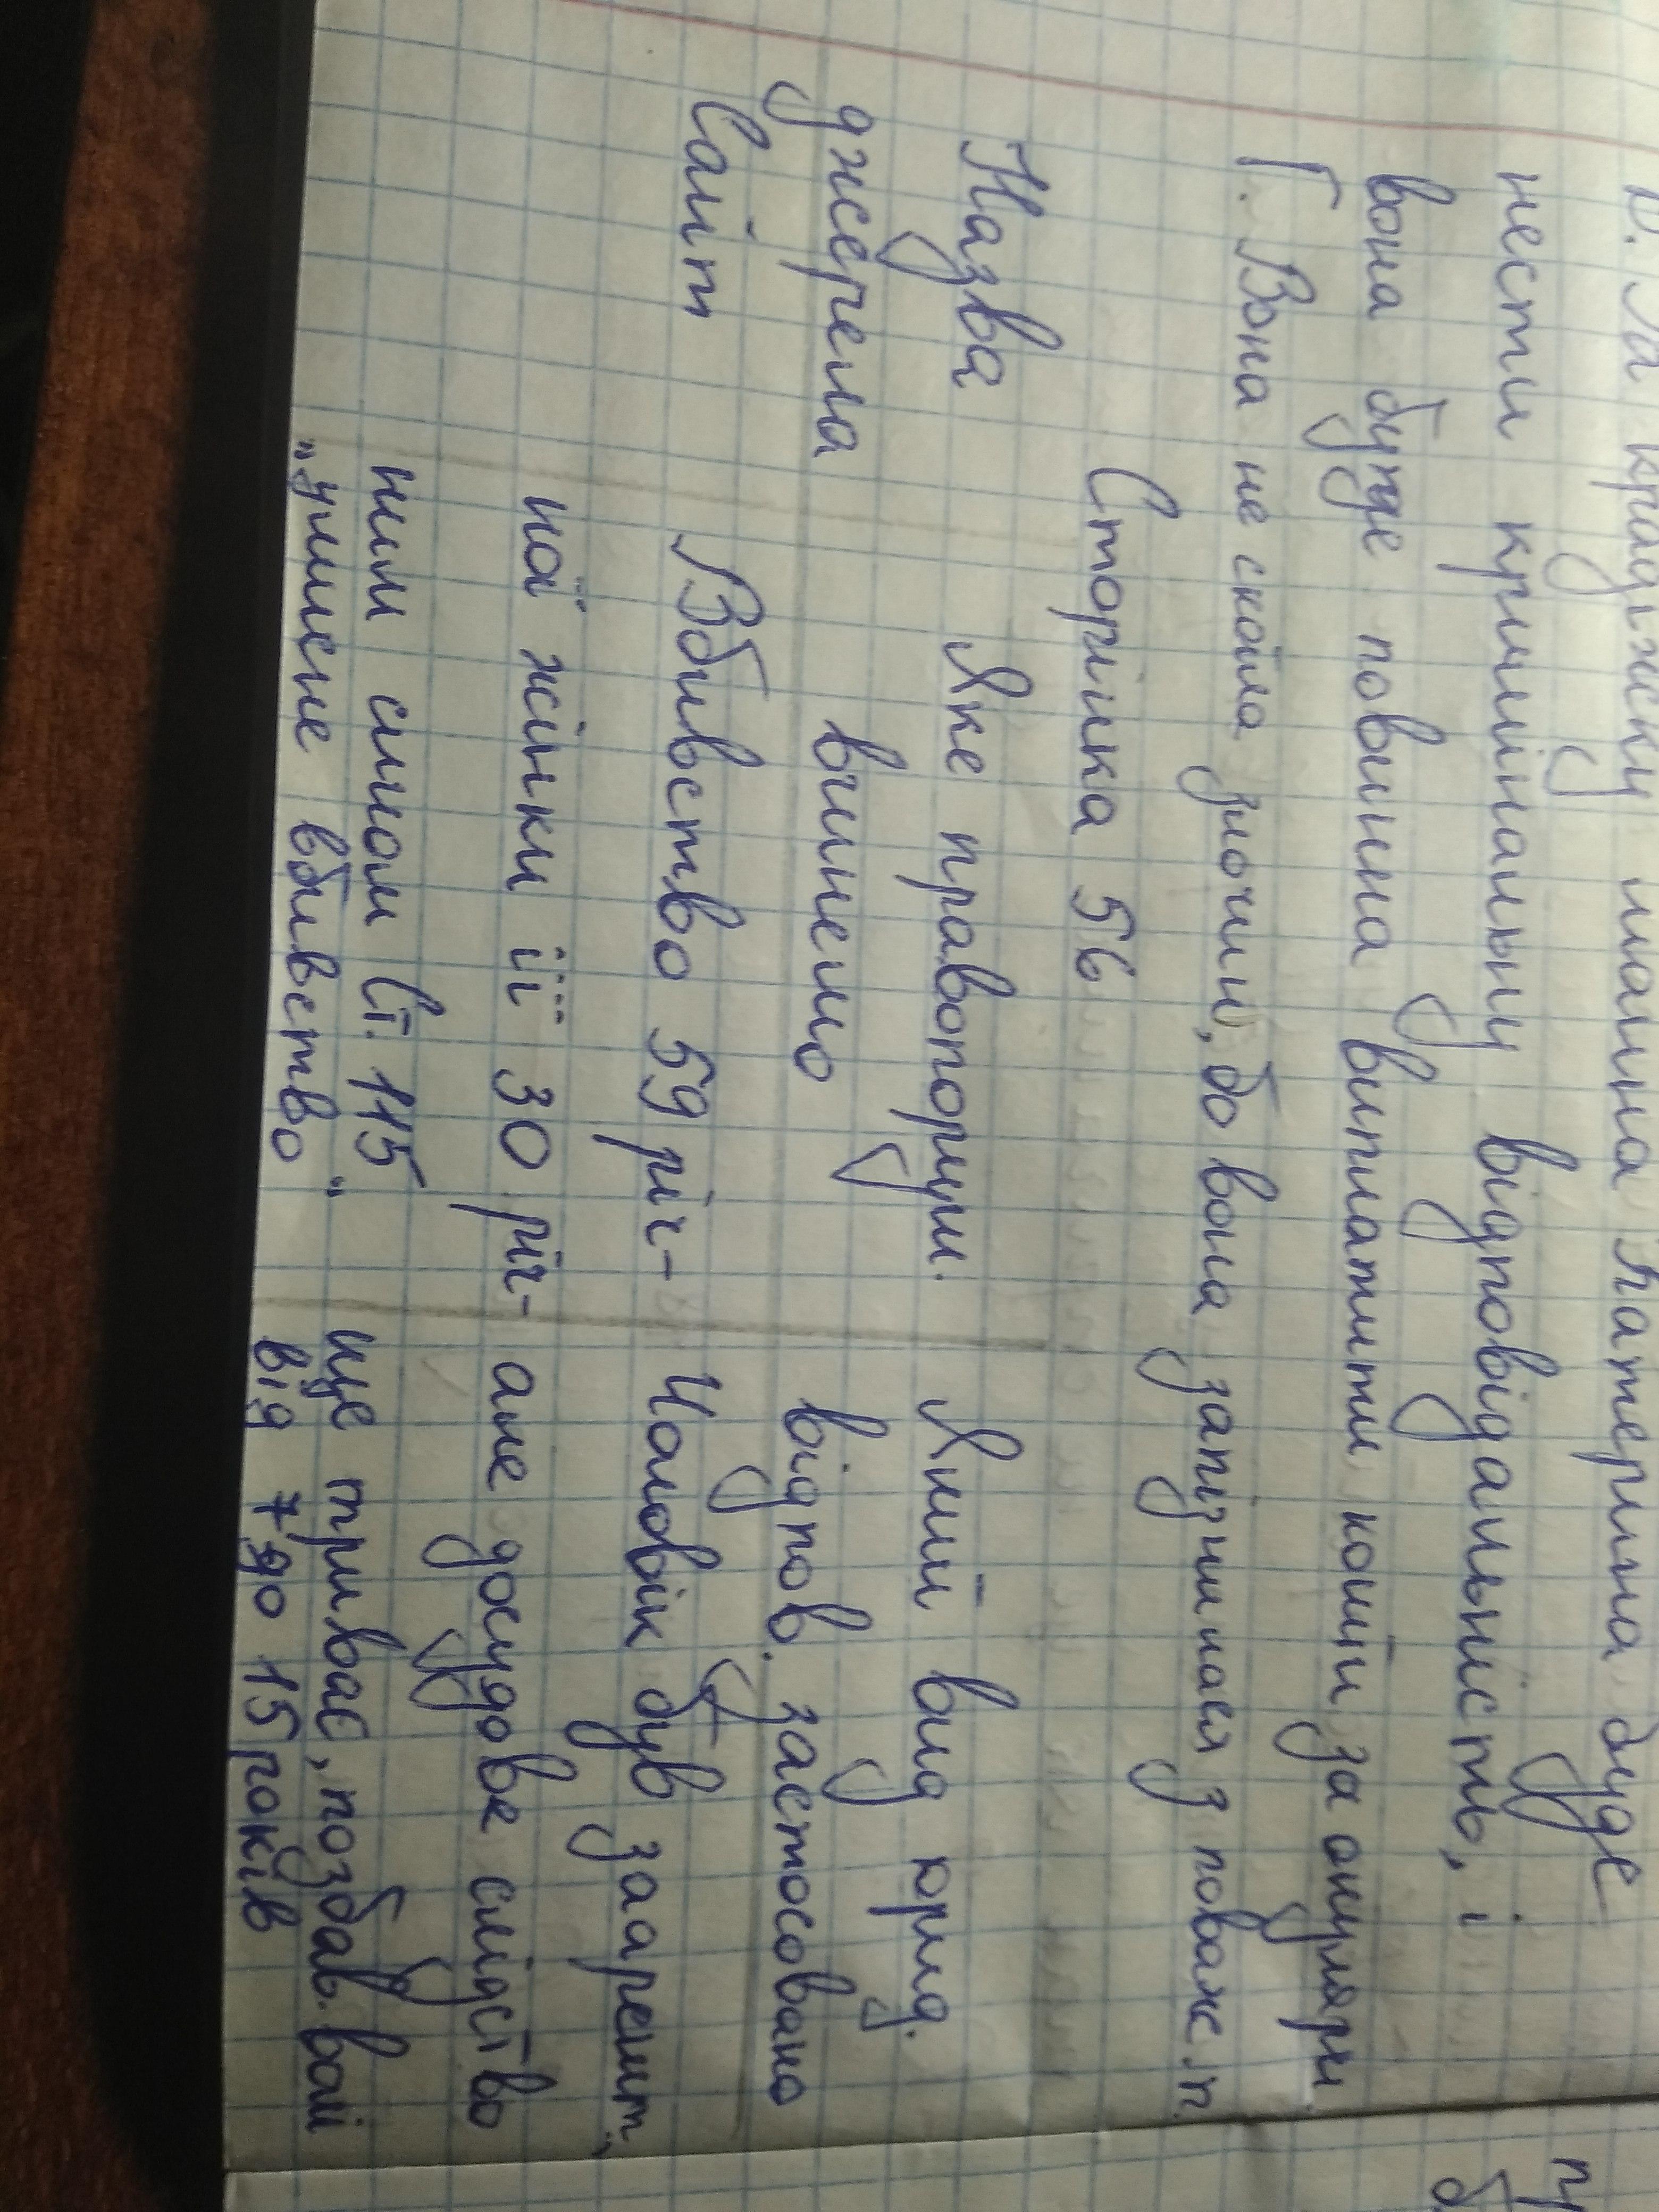 В. За крадіжку малина Катерина буде
нести кримінальну відповідальність, і
вона буде повинна виплатити кошти за окуляри
Г. Вона не скоїла злочин, бо вона запізнилася з поваж. п.
Сторінка 56
Назва Яке правопоруш. Який вид юрид.
джерела вчинено відпов. застосовано
Сайт Вбивство 59 річ- Чоловік був заарешт.,
ної жінки її 30 річ- але досудове слідство
ним сином Ст. 115 ще триває, позбав. волі
"умисне вбивство" від 7 до 15 років